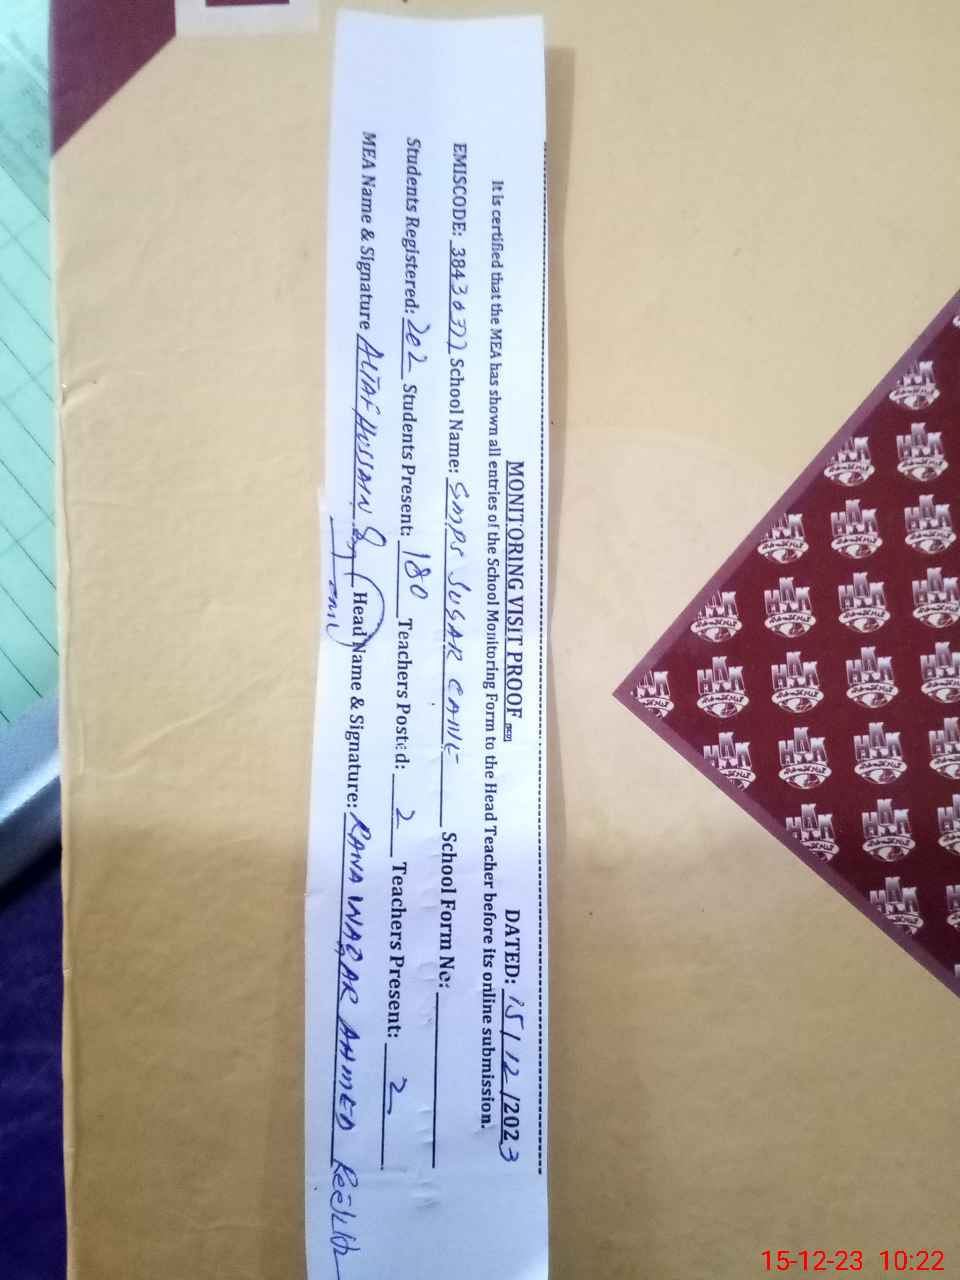 MONITORING VISIT PROOF DATED: 15/12/2023
It is certified that the MEA has shown all entries of the School Monitoring Form to the Head Teacher before its online submission.
EMISCODE: School Name: GMPS SUGAR CANE School Form No:
Students Registered: 202 Students Present: 180 Teachers Posted: 2 Teachers Present: 2
MEA Name & Signature ALTAF HUSSAIN Head Name & Signature: RANA WAQAR AHMED
15-12-23 10:22